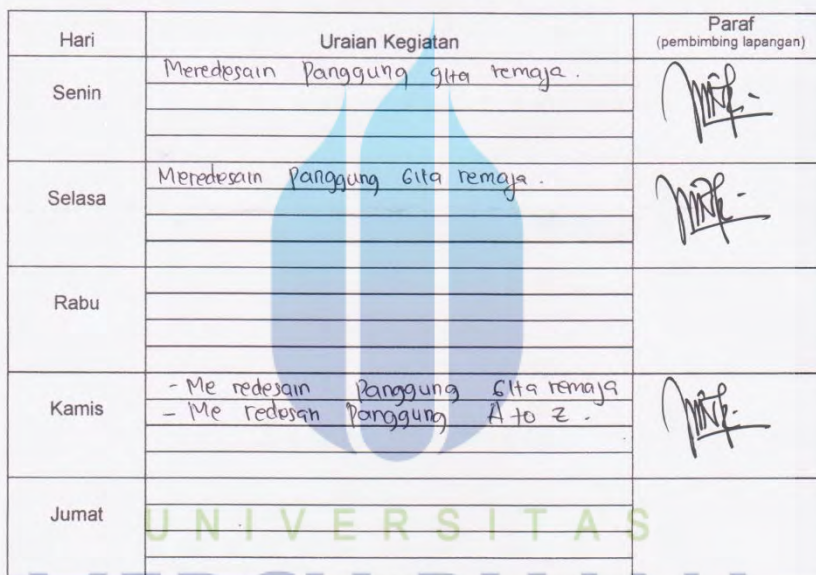 Hari Uraian Kegiatan Paraf
(pembimbing lapangan)
Senin Meredesain Panggung gita remaja.
Selasa Meredesain Panggung Gita remaja.
Rabu
Kamis - Me redesain Panggung Gita remaja
- Me redesan Panggung A to Z.
Jumat
UNIVERSITAS